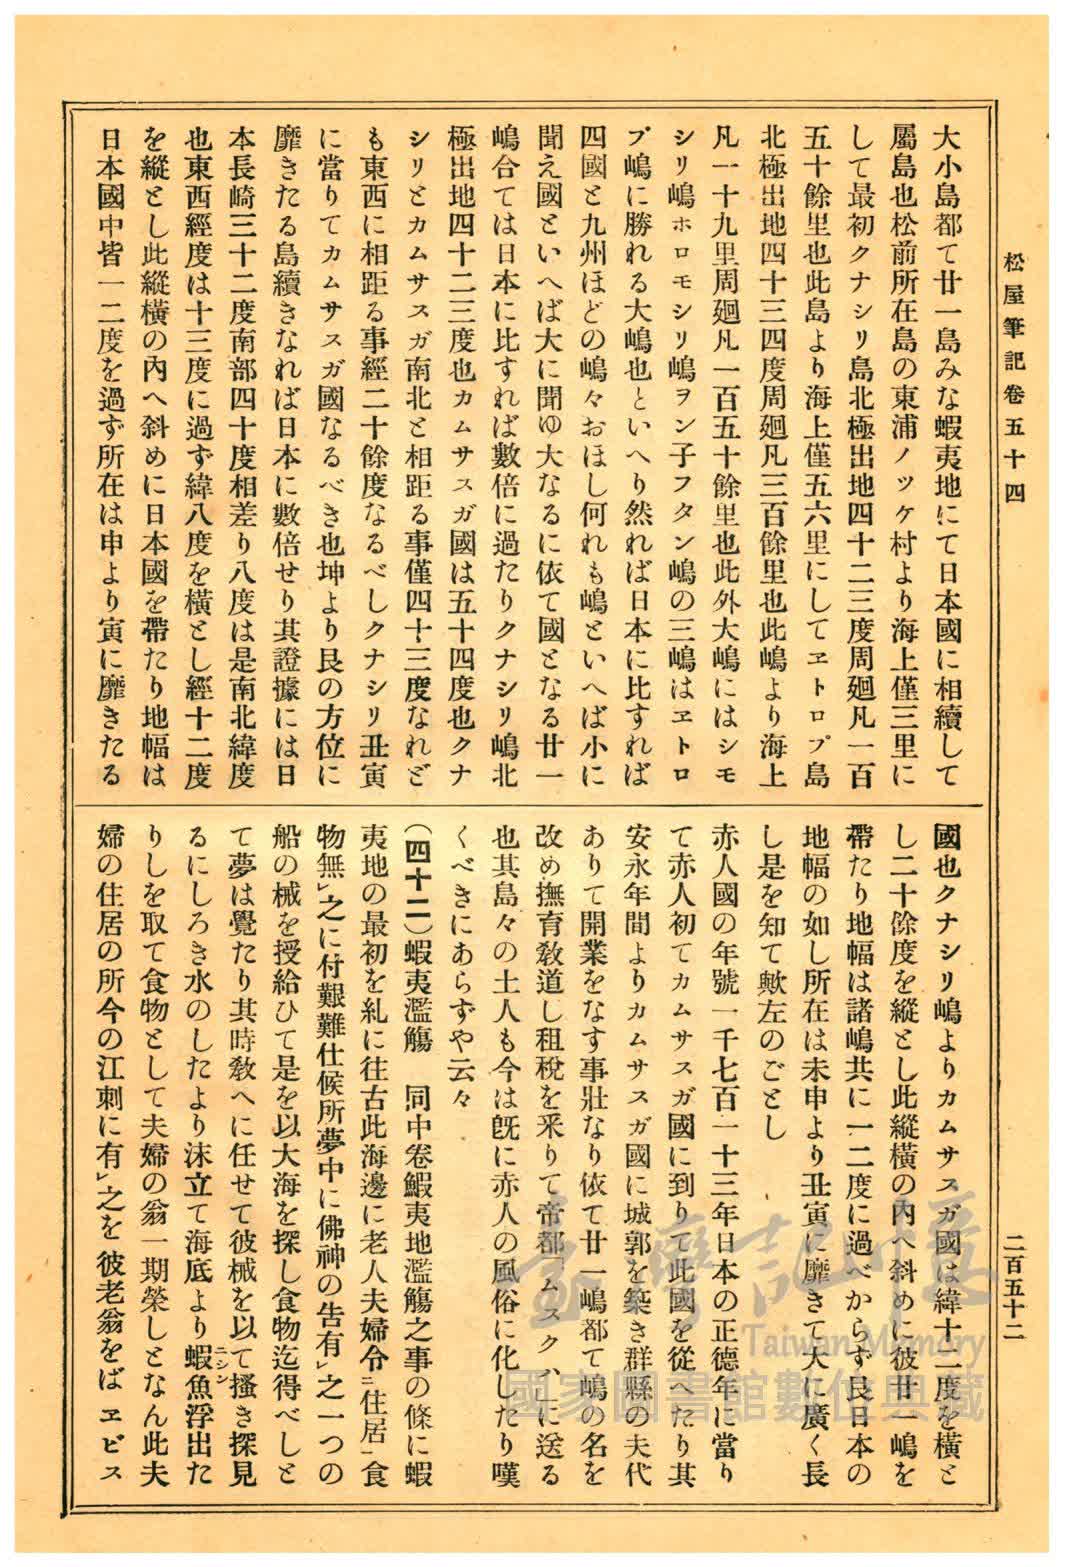 松屋筆記卷五十四
二百五十二
大小島都て廿一島みな蝦夷地にて日本國に相續して
屬島也松前所在島の東浦ノツケ村より海上僅三里に
して最初クナシリ島北極出地四十二三度周廻凡一百
五十餘里也此島より海上僅五六里にしてヱトロプ島
北極出地四十三四度周廻凡三百餘里也此嶋より海上
凡一十九里周廻凡一百五十餘里也此外大嶋にはシモ
シリ嶋ホロモシリ嶋ヲン子フタン嶋の三嶋はヱトロ
プ嶋に勝れる大嶋也といへり然れば日本に比すれば
四國と九州ほどの嶋々おほし何れも嶋といへば小に
聞え國といへば大に聞ゆ大なるに依て國となる廿一
嶋合ては日本に比すれば數倍に過たりクナシリ嶋北
極出地四十二三度也カムサスガ國は五十四度也クナ
シリとカムサスガ南北と相距る事僅四十三度なれど
も東西に相距る事經二十餘度なるべしクナシリ丑寅
に當りてカムサスガ國なるべき也坤より艮の方位に
靡きたる島續きなれば日本に數倍せり其證據には日
本長崎三十二度南部四十度相差り八度は是南北緯度
也東西經度は十三度に過ず緯八度を橫とし經十二度
を縱とし此縱橫の內へ斜めに日本國を帶たり地幅は
日本國中皆一二度を過ず所在は申より寅に靡きたる
國也クナシリ嶋よりカムサスガ國は緯十二度を橫と
し二十餘度を縱とし此縱橫の內へ斜めに彼廿一嶋を
帶たり地幅は諸嶋共に一二度に過べからず艮日本の
地幅の如し所在は未申より丑寅に靡きて大に廣く長
し是を知て歟左のごとし
赤人國の年號一千七百一十三年日本の正德年に當り
て赤人初てカムサスガ國に到りて此國を從へたり其
安永年間よりカムサスガ國に城郭を築き群縣の夫代
ありて開業をなす事壯なり依て廿一嶋都て嶋の名を
改め撫育敎道し租稅を釆りて帝都「ムスクハ」に送る
也其島々の土人も今は旣に赤人の風俗に化したり嘆
くべきにあらずや云々
(四十二)蝦夷濫觴 同中卷鰕夷地濫觴之事の條に蝦
夷地の最初を糺に往古此海邊に老人夫婦令ニ住居一食
物無レ之に付艱難仕候所夢中に佛神の吿有レ之一つの
船の械を授給ひて是を以大海を探し食物迄得べしと
て夢は覺たり其時敎へに任せて彼械を以て搔き探見
るにしろき水のしたより沫立て海底より蝦魚浮出た
ニシン
りしを取て食物として夫婦の翁一期榮しとなん此夫
婦の住居の所今の江刺に有レ之を 彼老翁をば ヱビス
臺灣記憶
Taiwan Memory
國家圖書館數位典藏